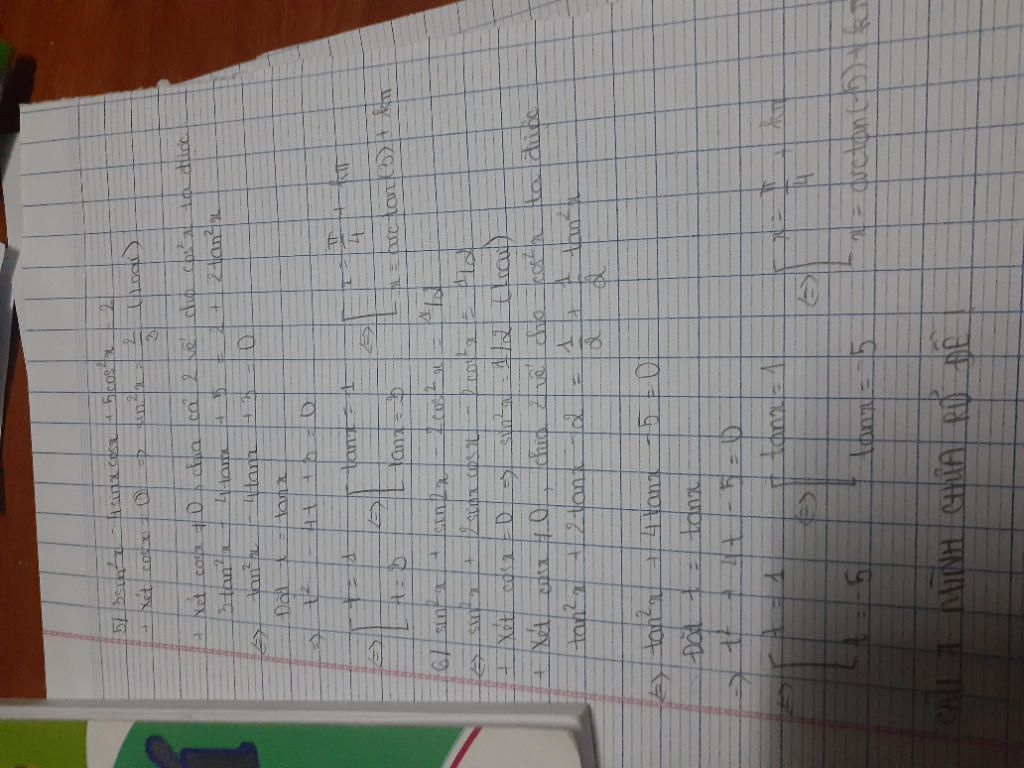 5/ 3sin²x - 4sinxcosx + 5cos²x = 2
+ Xét cosx = 0 => sin²x = 2/3 (loại)
+ Xét cosx ≠ 0, chia cả 2 vế cho cos²x ta được
3tan²x - 4tanx + 5 = 2 + 2tan²x
<=> tan²x - 4tanx + 3 = 0
Đặt t = tanx
=> t² - 4t + 3 = 0
<=> [ t = 1 <=> [ tanx = 1 <=> [ x = π/4 + kπ
[ t = 3 [ tanx = 3 [ x = arctan(3) + kπ
6/ sin²x + sin2x - 2cos²x = 1/2
<=> sin²x + 2sinxcosx - 2cos²x = 1/2
+ Xét cosx = 0 => sin²x = 1/2 (loại)
+ Xét cosx ≠ 0, chia 2 vế cho cos²x ta được
tan²x + 2tanx - 2 = 1/2 + 1/2 tan²x
<=> tan²x + 4tanx - 5 = 0
Đặt t = tanx
=> t² + 4t - 5 = 0
<=> [ t = 1 <=> [ tanx = 1 <=> [ x = π/4 + kπ
[ t = -5 [ tanx = -5 [ x = arctan(-5) + kπ
CÂU 7 MÌNH CHƯA RÕ ĐỀ !